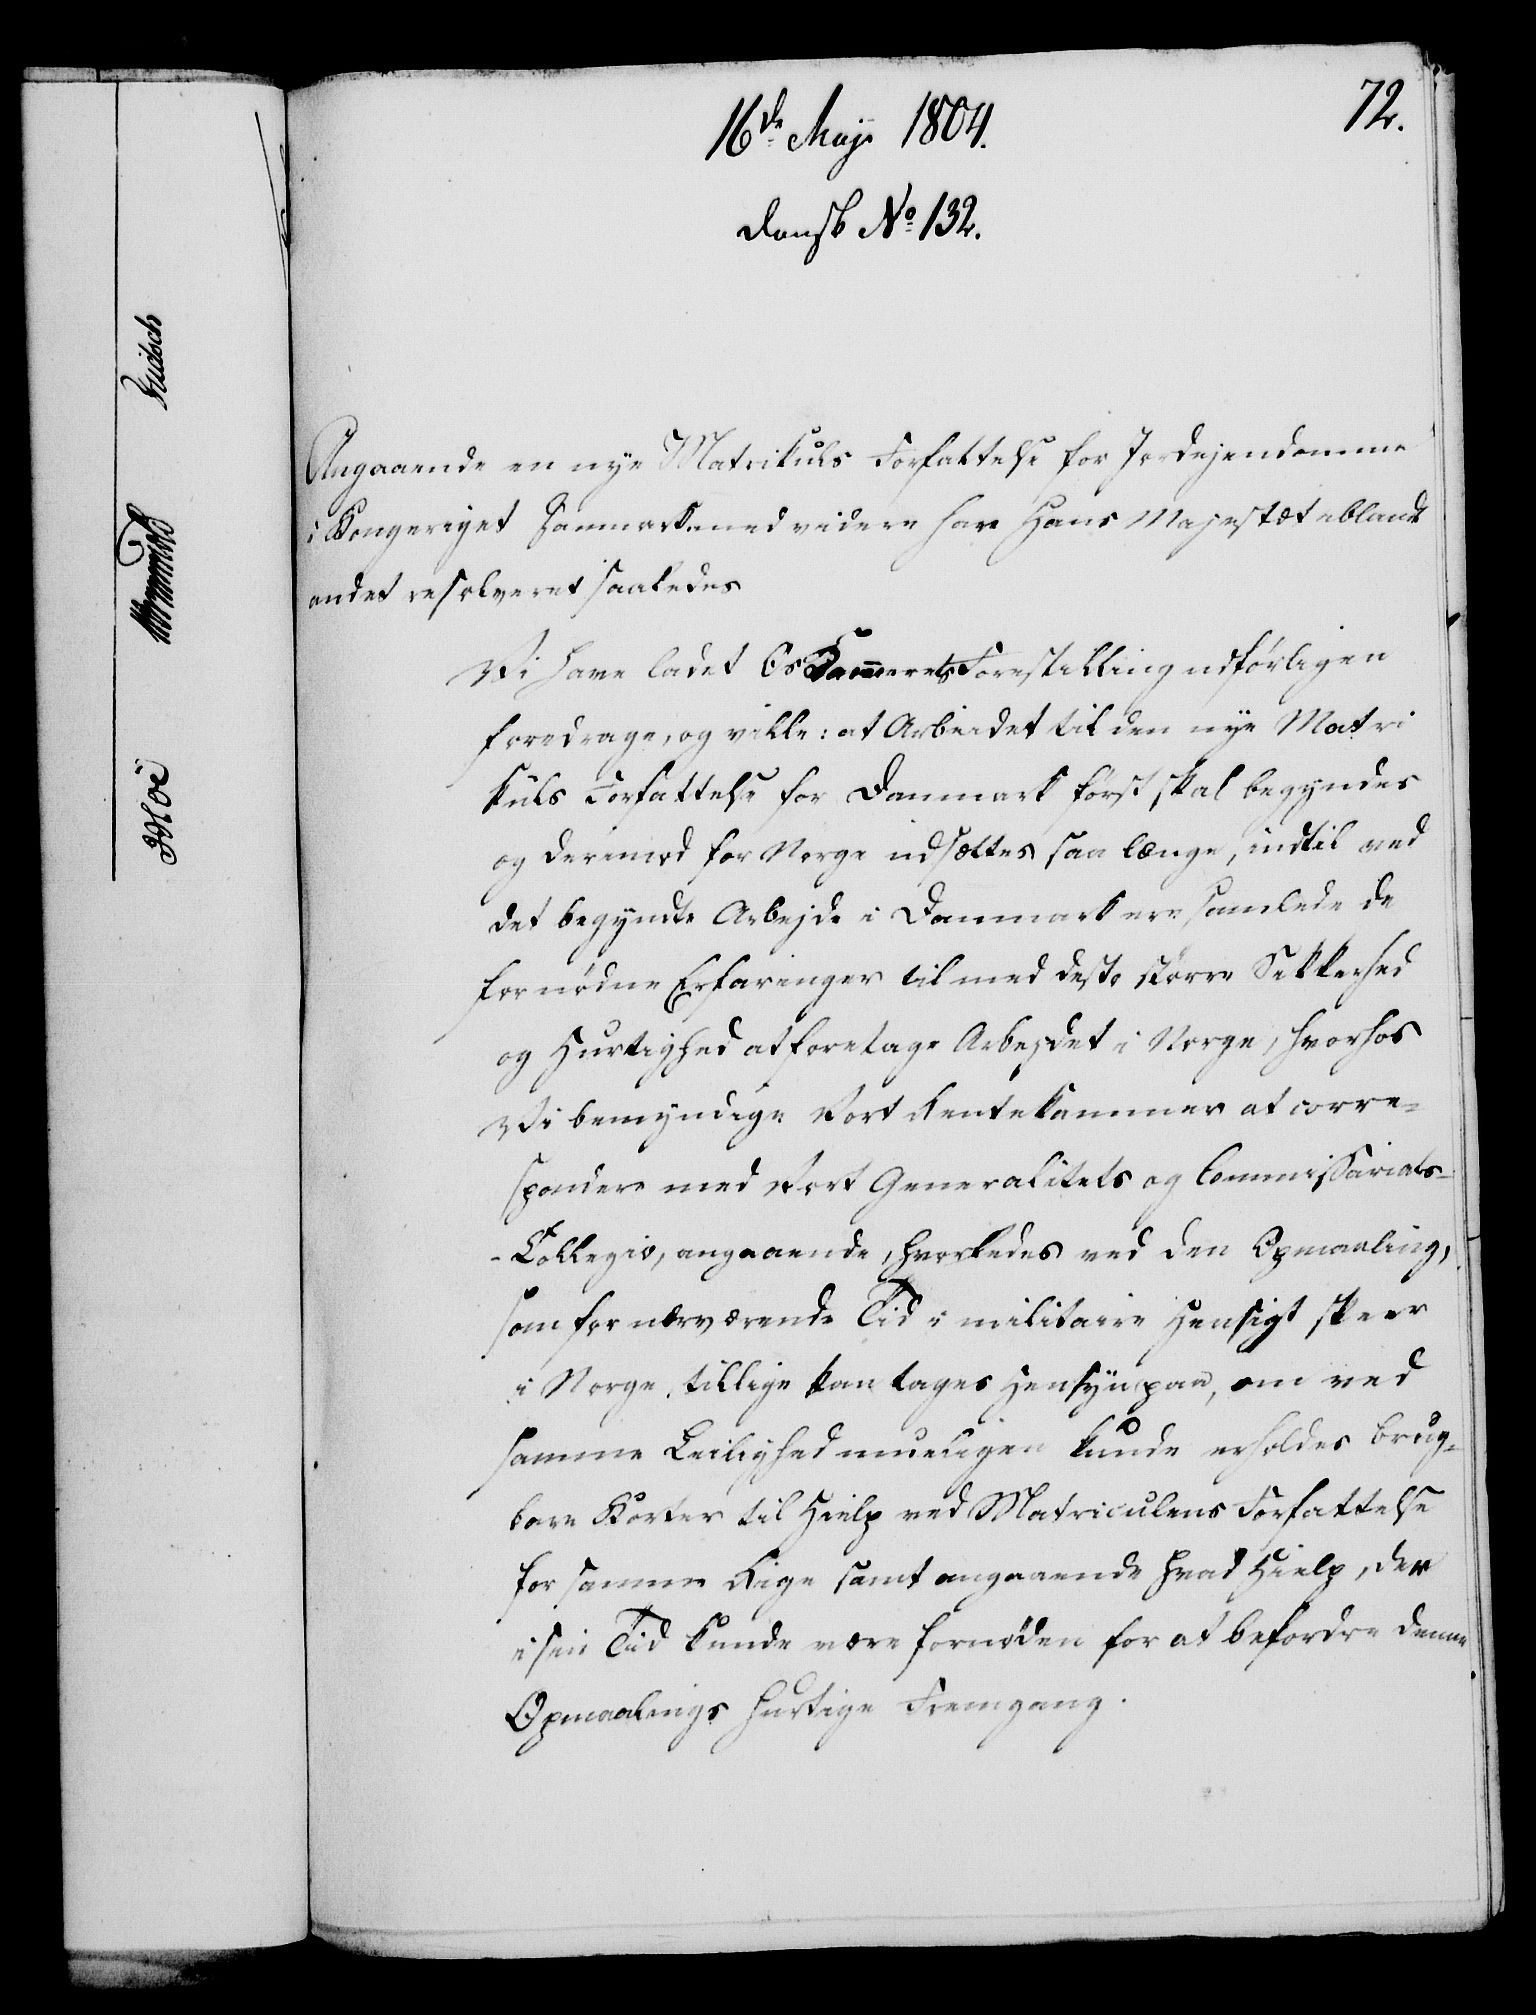 72.
16de Maji 1804.
Dansk No 132.
Angaaende en nye Matrikuls Forfattelse for Jordejendomme
i Kongeriget Danmark med videre har Hans Majestæt iblandt
andet resolveret saaledes
Vi have ladet Os Kammerets Forestilling udførligen
foredrage, og ville: at Arbeidet til den nye Matri
kuls Forfattelse for Danmark først skal begyndes
og derimod for Norge udsættes saa længe, indtil ved
det begyndte Arbejde i Danmark ere samlede de
fornødne Erfaringer til med desto større Sikkerhed
og Hurtighed at foretage Arbejdet i Norge, hvorhos
Vi bemyndige Vort Rentekammer at corre-
spondere med Vort Generalitets og Commissariats-
-Collegio, angaaende, hvorledes ved den Opmaaling,
som for nærværende Tid i militaire Hensigt skeer
i Norge, tillige kan tages Hensyn paa, om ved
samme Leilighed mueligen kunde erholdes brug-
bare Korter til Hielp ved Matriculens Forfattelse
for samme Rige samt angaaende hvad Hielp, der
i sin Tid kunde være fornøden for at befordre denne
Opmaalings hurtige Fremgang.